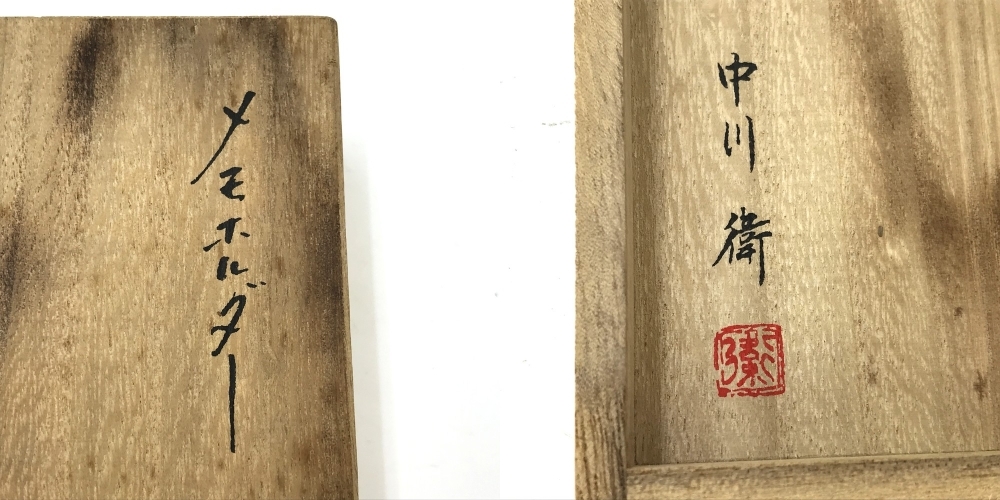 メモホルダー
中川 衛
衛